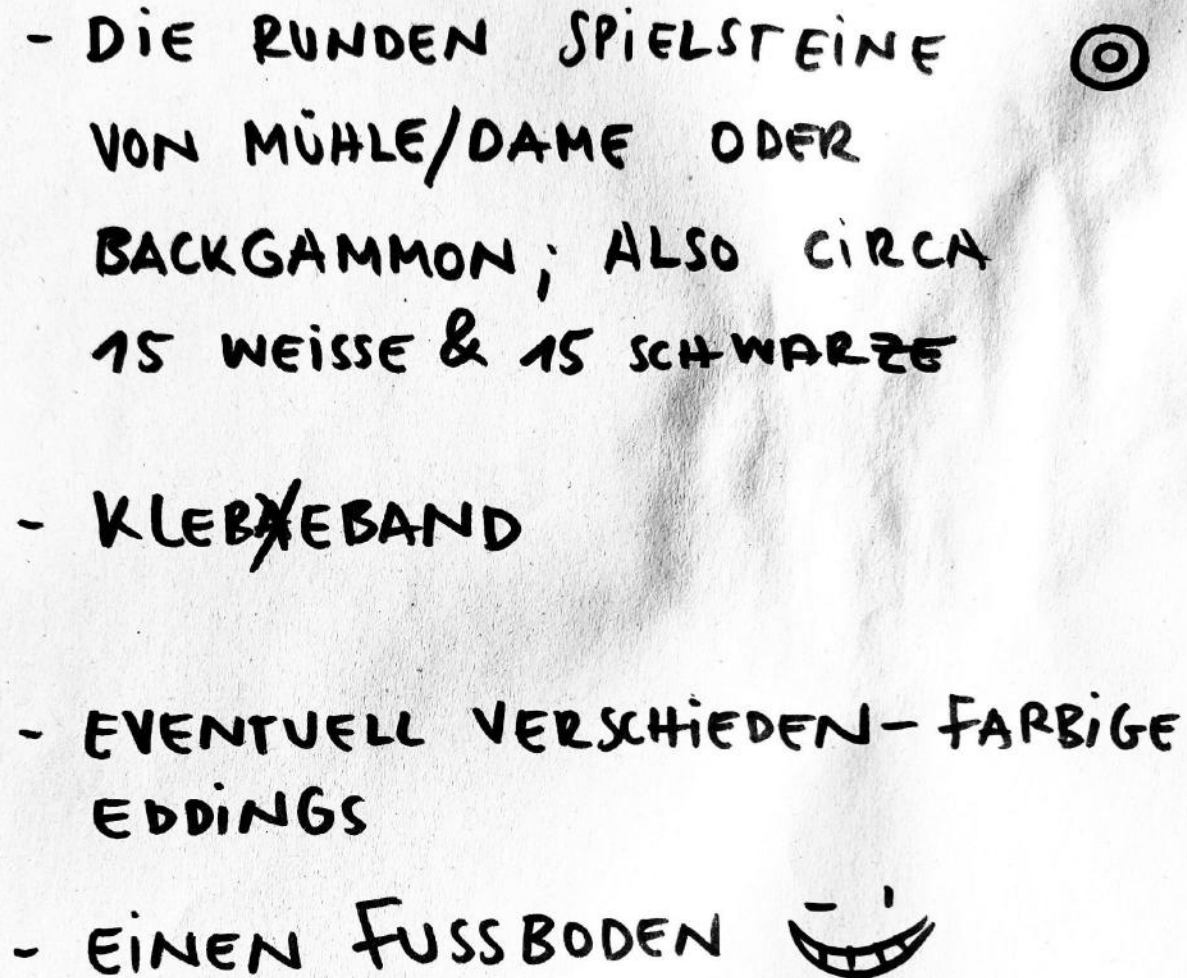 - DiE RUNDEN SPiELSTEiNE
VON MÜHLE/DAME ODER
BACKGAMMON; ALSO CiRCA
15 WEiSSE & 15 SCHWARZE
- KLEBEBAND
- EVENTUELL VERSCHiEDEN-FARBiGE
EDDiNGS
- EiNEN FUSSBODEN